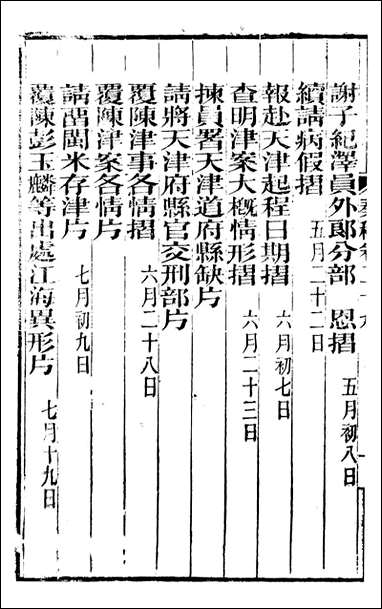 謝子紀澤員外郎分部 恩摺 五月初八日
續請病假摺 五月二十二日
報赴天津起程日期摺 六月初七日
查明津案大概情形摺 六月二十三日
揀員署天津道府縣缺片
請將天津府縣官交刑部片
覆陳津事各情摺 六月二十八日
覆陳津案各情片
請留閩米存津片 七月初九日
覆陳彭玉麟等出處江海異形片 七月十九日